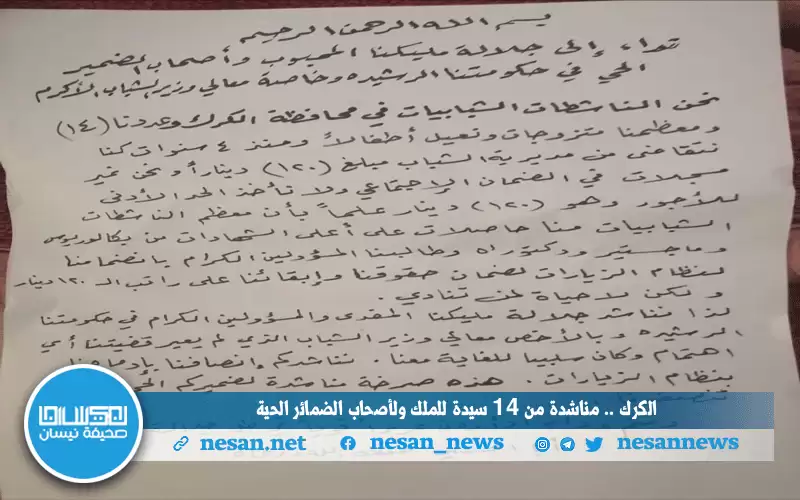 بسم الله الرحمن الرحيم
نداء إلى جلالة مليكنا المحبوب وأصحاب الضمير
الحي في حكومتنا الرشيده وخاصة معالي وزير الشباب الأكرم
نحن الناشطات الشبابيات في محافظة الكرك وعددنا (١٤)
ومعظمنا متزوجات ونعيل أطفالاً ومنذ ٤ سنوات كنا
نتقاضى من مديرية الشباب مبلغ (١٢٠) ديناراً ونحن غير
مسجلات في الضمان الإجتماعي ولا نأخذ الحد الأدنى
للأجور وهو (١٢٠) دينار علماً بأن معظم الناشطات
الشبابيات منا حاصلات على أعلى الشهادات من بكالوريوس
وماجستير ودكتوراه وطالبنا المسؤولين الكرام بانضمامنا
لنظام الزيارات لضمان حقوقنا وإبقائنا على راتب الـ ١٢٠ دينار
ولكن لا حياة لمن تنادي.
لذا نناشد جلالة مليكنا المفدى والمسؤولين الكرام في حكومتنا
الرشيده وبالأخص معالي وزير الشباب الذي لم يعير قضيتنا أي
اهتمام وكان سلبيا للغاية معنا. نناشدكم إنصافنا
بنظام الزيارات. هذه صرخة مناشدة لضميركم الحي
الكرك .. مناشدة من 14 سيدة للملك ولأصحاب الضمائر الحية
nesan.net nesan_news nesannews
صحيفة نيسان